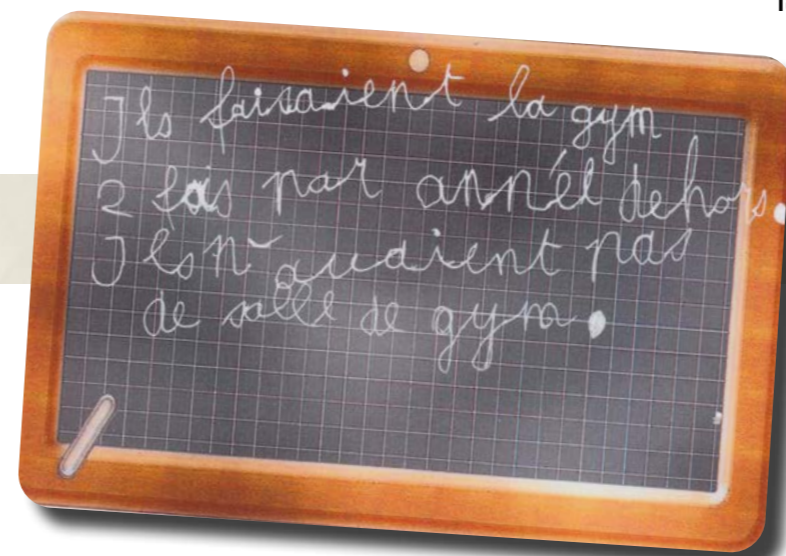 Ils faisaient la gym
2 fois par année dehors.
Ils n'avaient pas
de salle de gym.